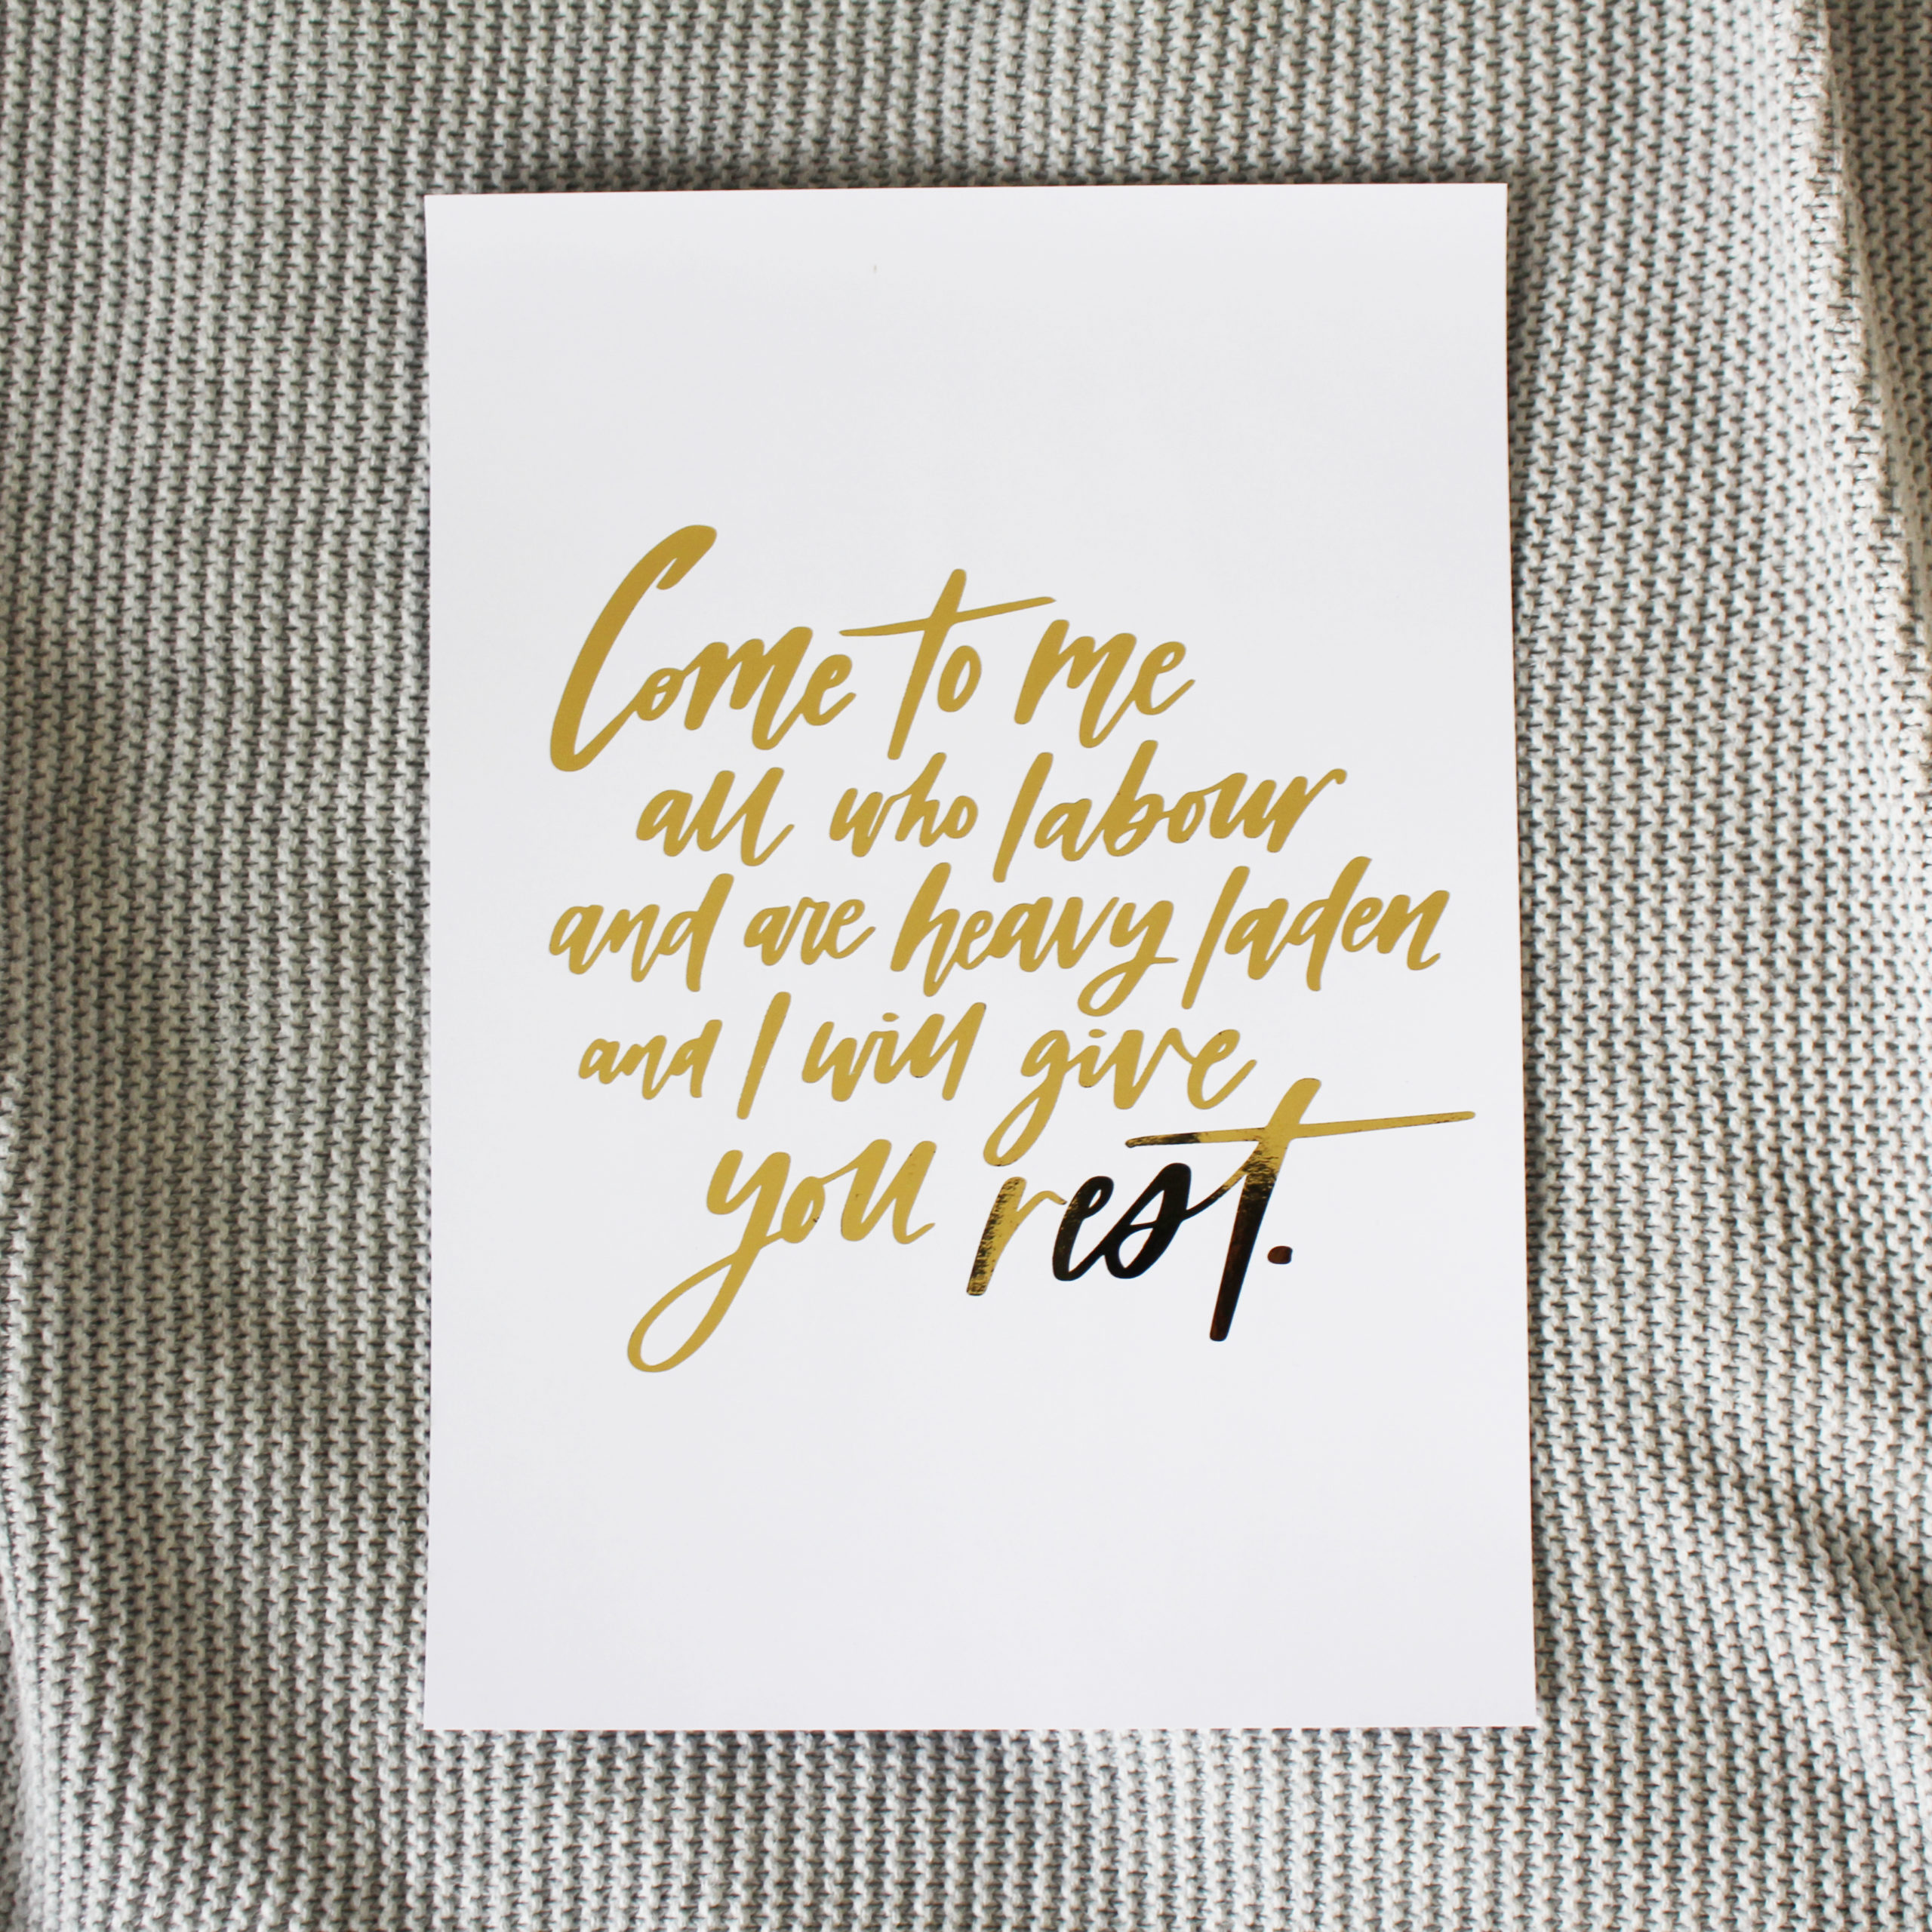 Come to me
all who labour
and are heavy laden
and I will give
you rest.